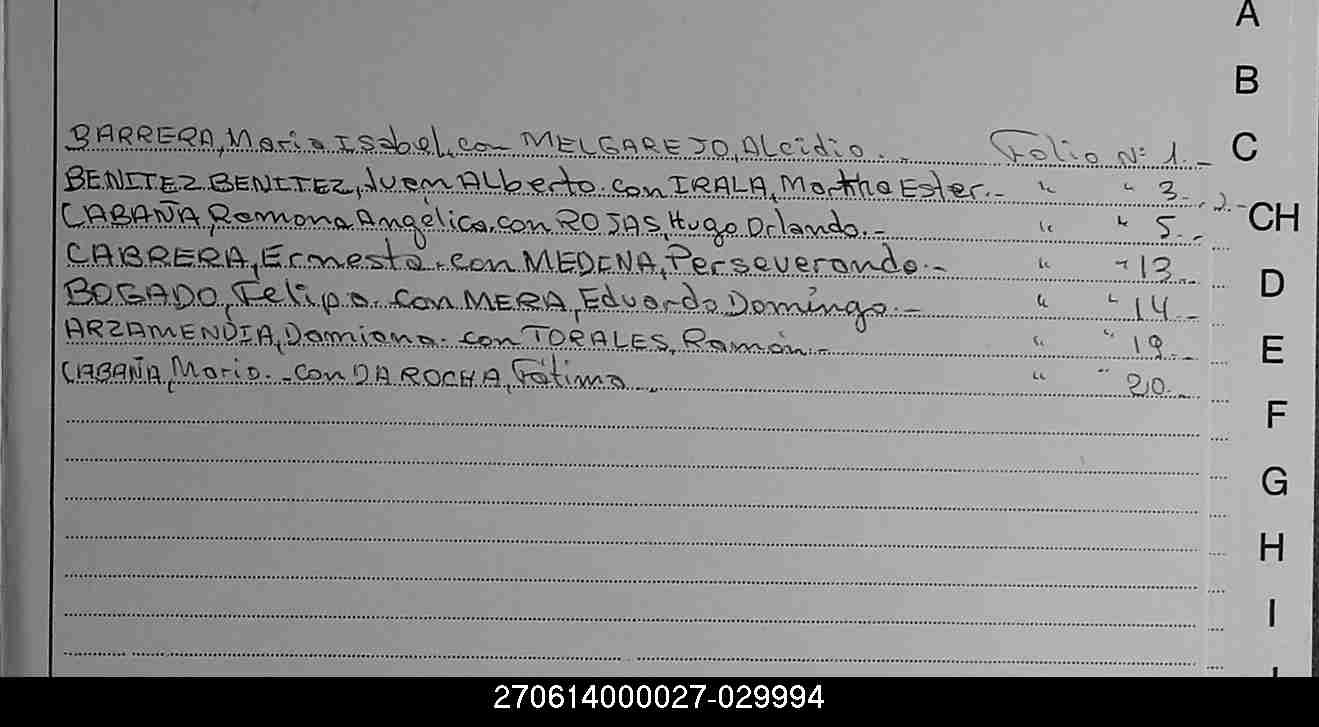 A
B
C
BARRERA, Maria Isabel, con MELGAREJO, Alcidio.- Folio Nº 1.-
BENITEZ BENITEZ, Juan Alberto. con IRALA, Martha Ester.- " " 3.-
CABAÑA, Ramona Angélica, con ROJAS, Hugo Orlando.- " " 5.-
CH
CABRERA, Ernesto. con MEDINA, Perseveranda.- " " 13.-
D
BOGADO, Felipa. con MERA, Eduardo Domingo.- " " 14.-
ARZAMENDIA, Damiana. con TORALES, Ramón.- " " 19.-
E
CABAÑA, Mario.- con DA ROCHA, Fátima.- " " 20.-
F
G
H
I
270614000027-029994